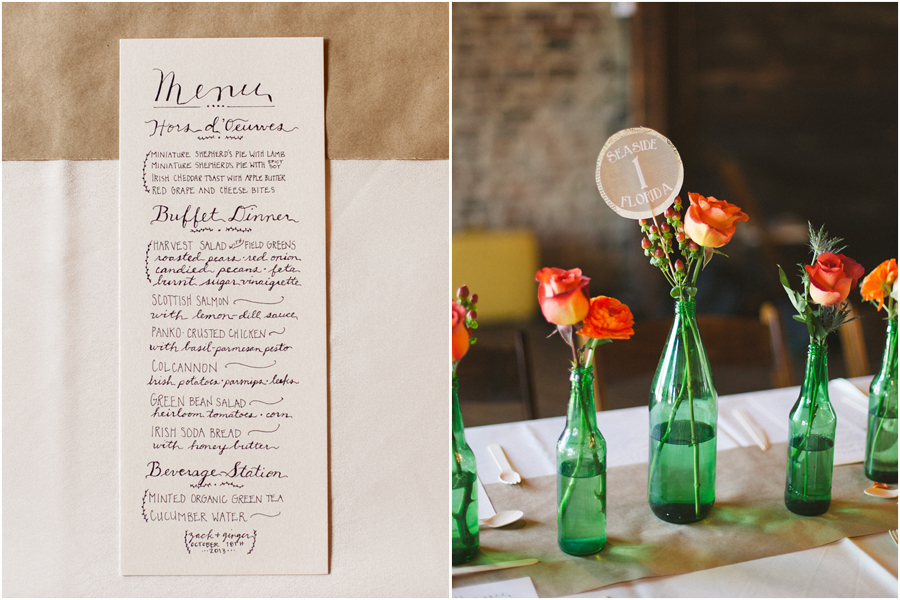 Menu
Hors d'Oeuvres
MINIATURE SHEPHERD'S PIE WITH LAMB
MINIATURE SHEPHERD'S PIE WITH SPICY TOT
IRISH CHEDDAR TOAST WITH APPLE BUTTER
RED GRAPE AND CHEESE BITES
Buffet Dinner
HARVEST SALAD with FIELD GREENS
roasted pears · red onion
candied pecans · feta
burnt sugar vinaigrette
SCOTTISH SALMON
with lemon-dill sauce
PANKO-CRUSTED CHICKEN
with basil-parmesan pesto
COLCANNON
Irish potatoes · parsnips · leeks
GREEN BEAN SALAD
heirloom tomatoes · corn
IRISH SODA BREAD
with honey butter
Beverage Station
MINTED ORGANIC GREEN TEA
CUCUMBER WATER
zack + ginger
OCTOBER 18TH
2013
SEASIDE
1
FLORIDA